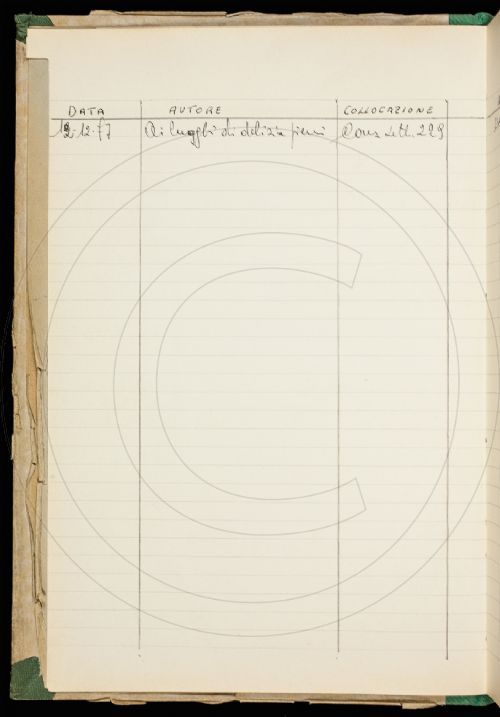 DATA AUTORE COLLOCAZIONE
12.12.77 Di luoghi di delizia pieni Cons. lett. 229